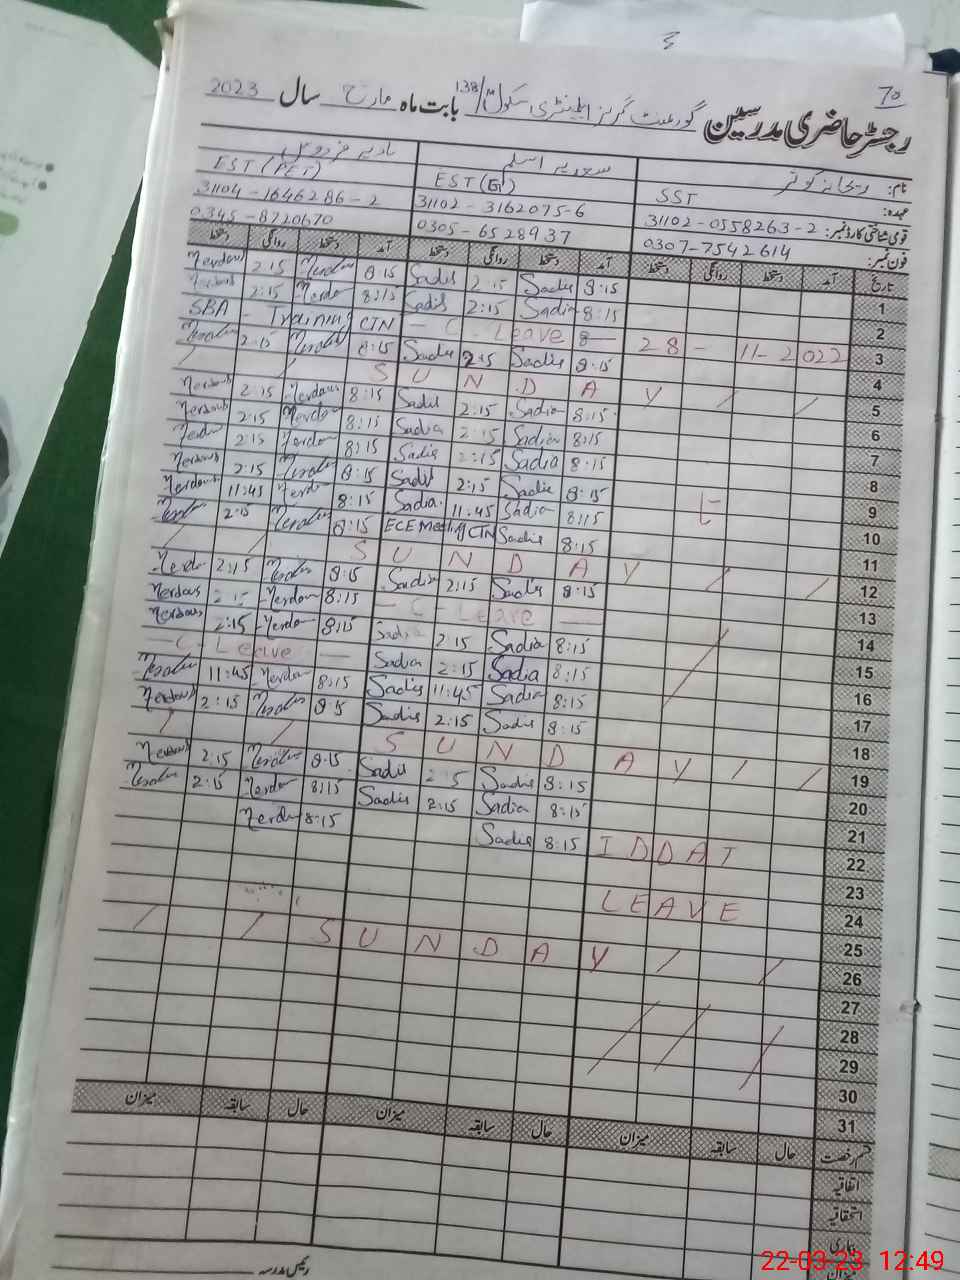 70
رجسٹر حاضری مدرسین گورنمنٹ گرلز ایلیمنٹری سکول 138/M بابت ماہ مارچ سال 2023
نام: ریحانہ کوثر سعدیہ اسلم نادیہ فردوس
عہدہ: SST EST (G) EST (PET)
قومی شناختی کارڈ نمبر: 31102-0558263-2 31102-3162075-6 31104-1646286-2
فون نمبر: 0307-7542614 0305-6528937 0345-8720670
تاریخ آمد دستخط روانگی دستخط آمد دستخط روانگی دستخط آمد دستخط روانگی دستخط
1 8:15 Sadia 2:15 Sadia 8:15 2:15
2 8:15 Sadia 2:15 Sadia 8:15 2:15
3 28-11-2022 C-Leave SBA - Training CTN
4 8:15 Sadia 2:15 Sadia 8:15 2:15
5 SUNDAY
6 8:15 Sadia 2:15 Sadia 8:15 2:15
7 8:15 Sadia 2:15 Sadia 8:15 2:15
8 8:15 Sadia 2:15 Sadia 8:15 2:15
9 8:15 Sadia 2:15 Sadia 8:15 2:15
10 8:15 Sadia 11:45 Sadia 8:15 11:45
11 8:15 Sadia ECE Meeting CTN 8:15 2:15
12 SUNDAY
13 8:15 Sadia 2:15 Sadia 8:15 2:15
14 C-Leave 8:15 2:15
15 8:15 Sadia 2:15 Sadia 8:15 2:15
16 8:15 Sadia 2:15 Sadia C-Leave
17 8:15 Sadia 11:45 Sadia 8:15 11:45
18 8:15 Sadia 2:15 Sadia 8:15 2:15
19 SUNDAY
20 8:15 Sadia 2:15 Sadia 8:15 2:15
21 8:15 Sadia 2:15 Sadia 8:15 2:15
22 IDDAT 8:15 Sadia 8:15
23
24 LEAVE
25
26 SUNDAY
27
28
29
30
31
قسم رخصت حال سابقہ میزان حال سابقہ میزان حال سابقہ میزان
اتفاقیہ
استحقاقیہ
بیماری
میزان
رئیس مدرسہ
22-03-23 12:49